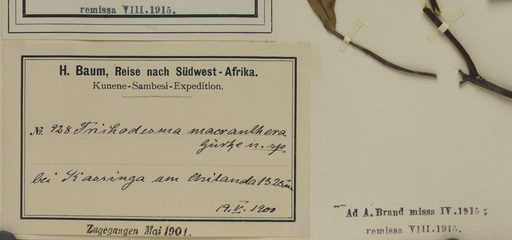 remissa VIII.1915.
H. Baum, Reise nach Südwest-Afrika.
Kunene-Sambesi-Expedition.
№ 928 Trichodesma macranthera
Gürke n. sp.
bei Kassinga am Chitanda 1325 m
19. V. 1900
Zugegangen Mai 1901.
Ad A. Brand missa IV.1915;
remissa VIII.1915.